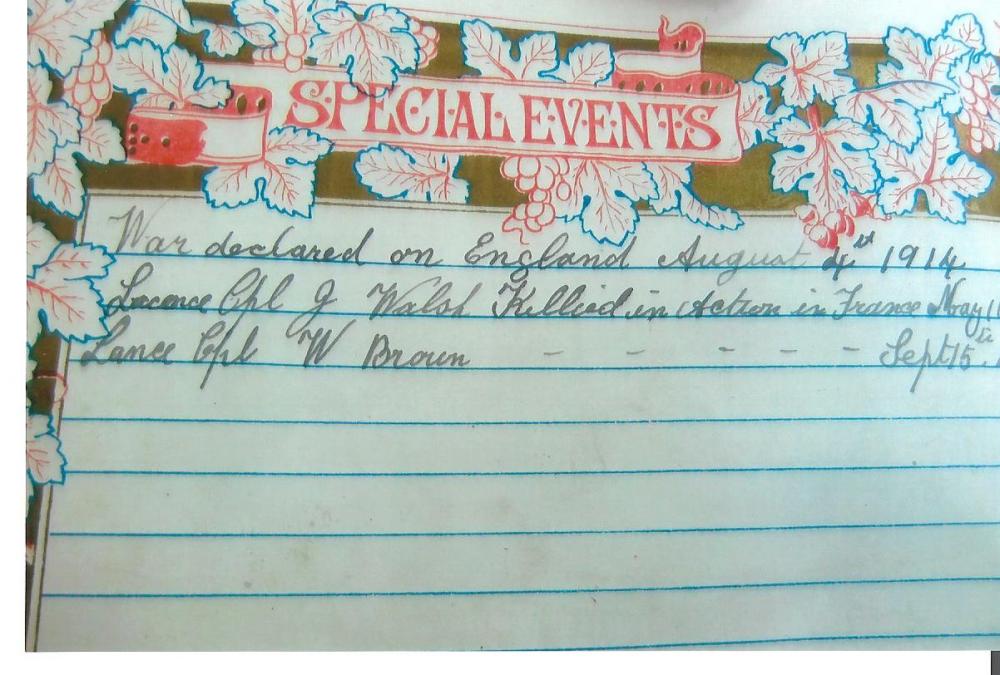 SPECIAL EVENTS
War declared on England August 4st 1914
Lance Cpl J Walsh Killied in Action in France May 1
Lance Cpl W Brown - - - - - Sept 15